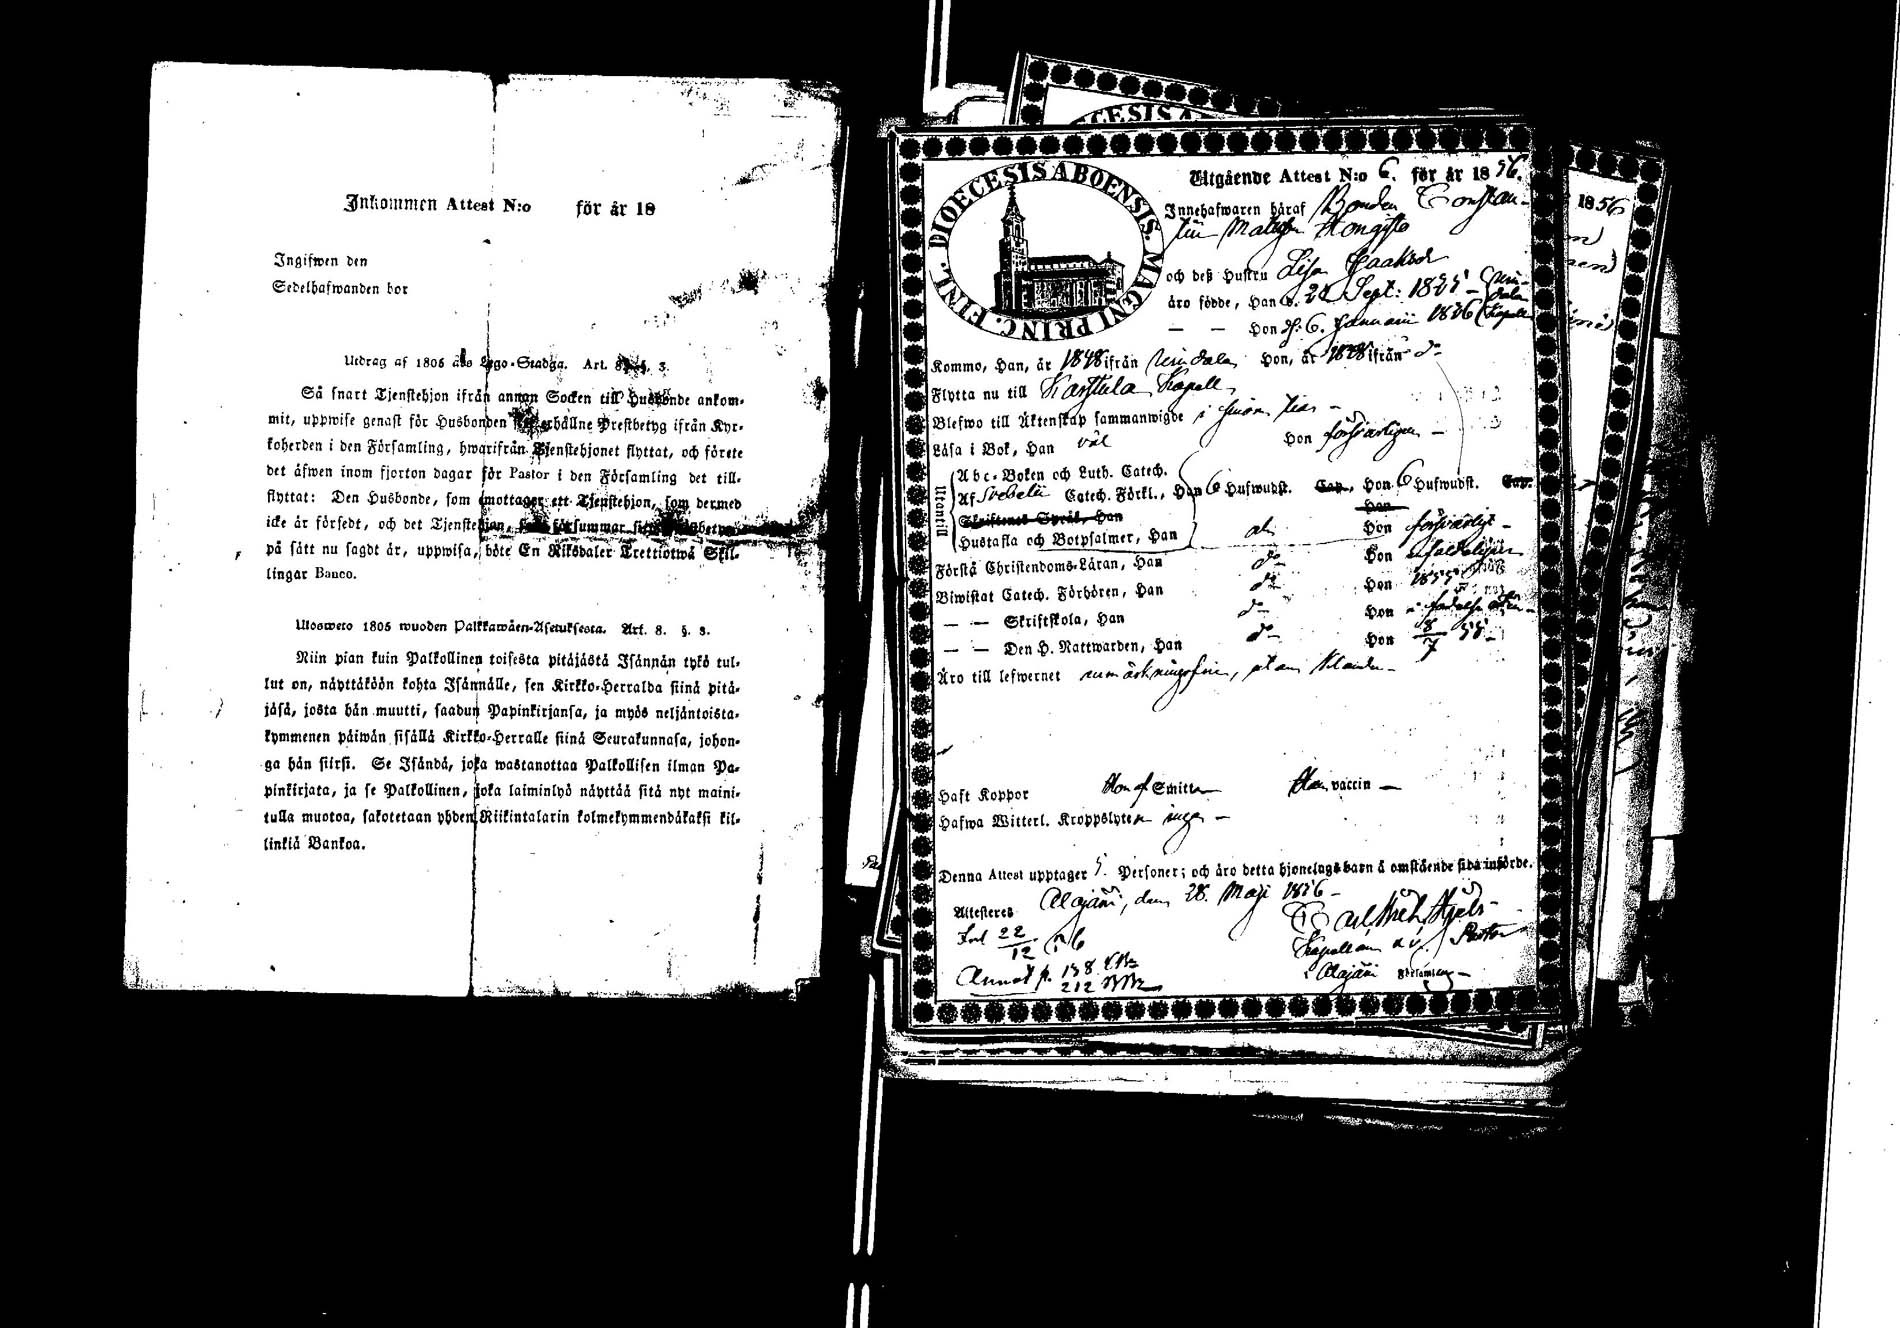 Inkommen Attest N:o för år 18
Ingifwen den
Sedelhafwanden bor
Utdrag af 1805 års Lego-Stadga. Art. 8. §. 3.
Så snart Tjenstehjon ifrån annan Socken till Husbonde ankom-
mit, uppwise genast för Husbonden erhållne Prestbetyg ifrån Kyr-
koherden i den Församling, hwarifrån Tjenstehjonet flyttat, och förete
det äfwen inom fjorton dagar för Pastor i den Församling det till-
flyttat: Den Husbonde, som emottager ett Tjenstehjon, som dermed
icke är försedt, och det Tjenstehjon, som försummar
på sätt nu sagdt är, uppwisa, böte En Riksdaler Trettiotwå Skil-
lingar Banco.
Ulosweto 1805 wuoden Palkkawäen-Asetuksesta. Art. 8. §. 3.
Niin pian kuin Palkollinen toisesta pitäjästä Isännän tykö tul-
lut on, näyttäköön kohta Isännälle, sen Kirkko-Herralda siinä pitä-
jäsä, josta hän muutti, saadun Papinkirjansa, ja myös neljäntoista-
kymmenen päiwän sisällä Kirkko-Herralle siinä Seurakunnasa, johon-
ga hän siirsi. Se Isändä, joka wastanottaa Palkollisen ilman Pa-
pinkirjata, ja se Palkollinen, joka laiminlyö näyttää sitä nyt maini-
tulla muotoa, sakotetaan yhden Riikintalarin kolmekymmendäkaksi kil-
linkiä Bankoa.
DIOECESIS ABOENSIS. MAGNI PRINC. FINL.
Utgående Attest N:o 6. för år 1856.
Innehafwaren häraf Bonden Constan-
tin Matthson Hongisto
och deß Hustru Lisa Jaaksdr
äro födde, Han d. 22 Sept: 1825
— — Hon d: 6. Januarii 1826 Kapell
Kommo, Han, år 1848 ifrån Hon, år 1848 ifrån do
Flytta nu till Karstula Kapell
Blefwo till Äktenskap sammanwigde i
Läsa i Bok, Han väl Hon försvarligen —
Utantill
Abc-Boken och Luth. Catech.
Af Svebelii Catech. Förkl., Han 6 Hufwudst. Cap., Hon 6 Hufwudst. Cap.
Skriftenes Språk, Han Hon
Hustafla och Botpsalmer, Han Hon försvarligt —
Förstå Christendoms-Läran, Han do Hon
Biwistat Catech. Förhören, Han do Hon 1855
— — Skriftskola, Han do Hon
— — Den H. Nattwarden, Han do Hon 8/7 55 —
Äro till lefwernet
Haft Koppor Hon af Smitta Han vaccin —
Hafwa Witterl. Kroppslyten inga —
Denna Attest upptager 5. Personer; och äro detta hjonelags barn å omstående sida införde.
Attesteres Alajärvi, den 28. Maji 1856 —
Inl 22/12 56
Kapellan v. Pastor
i Alajärvi Församling —
Annot p. 138 KB
212 MB
1856